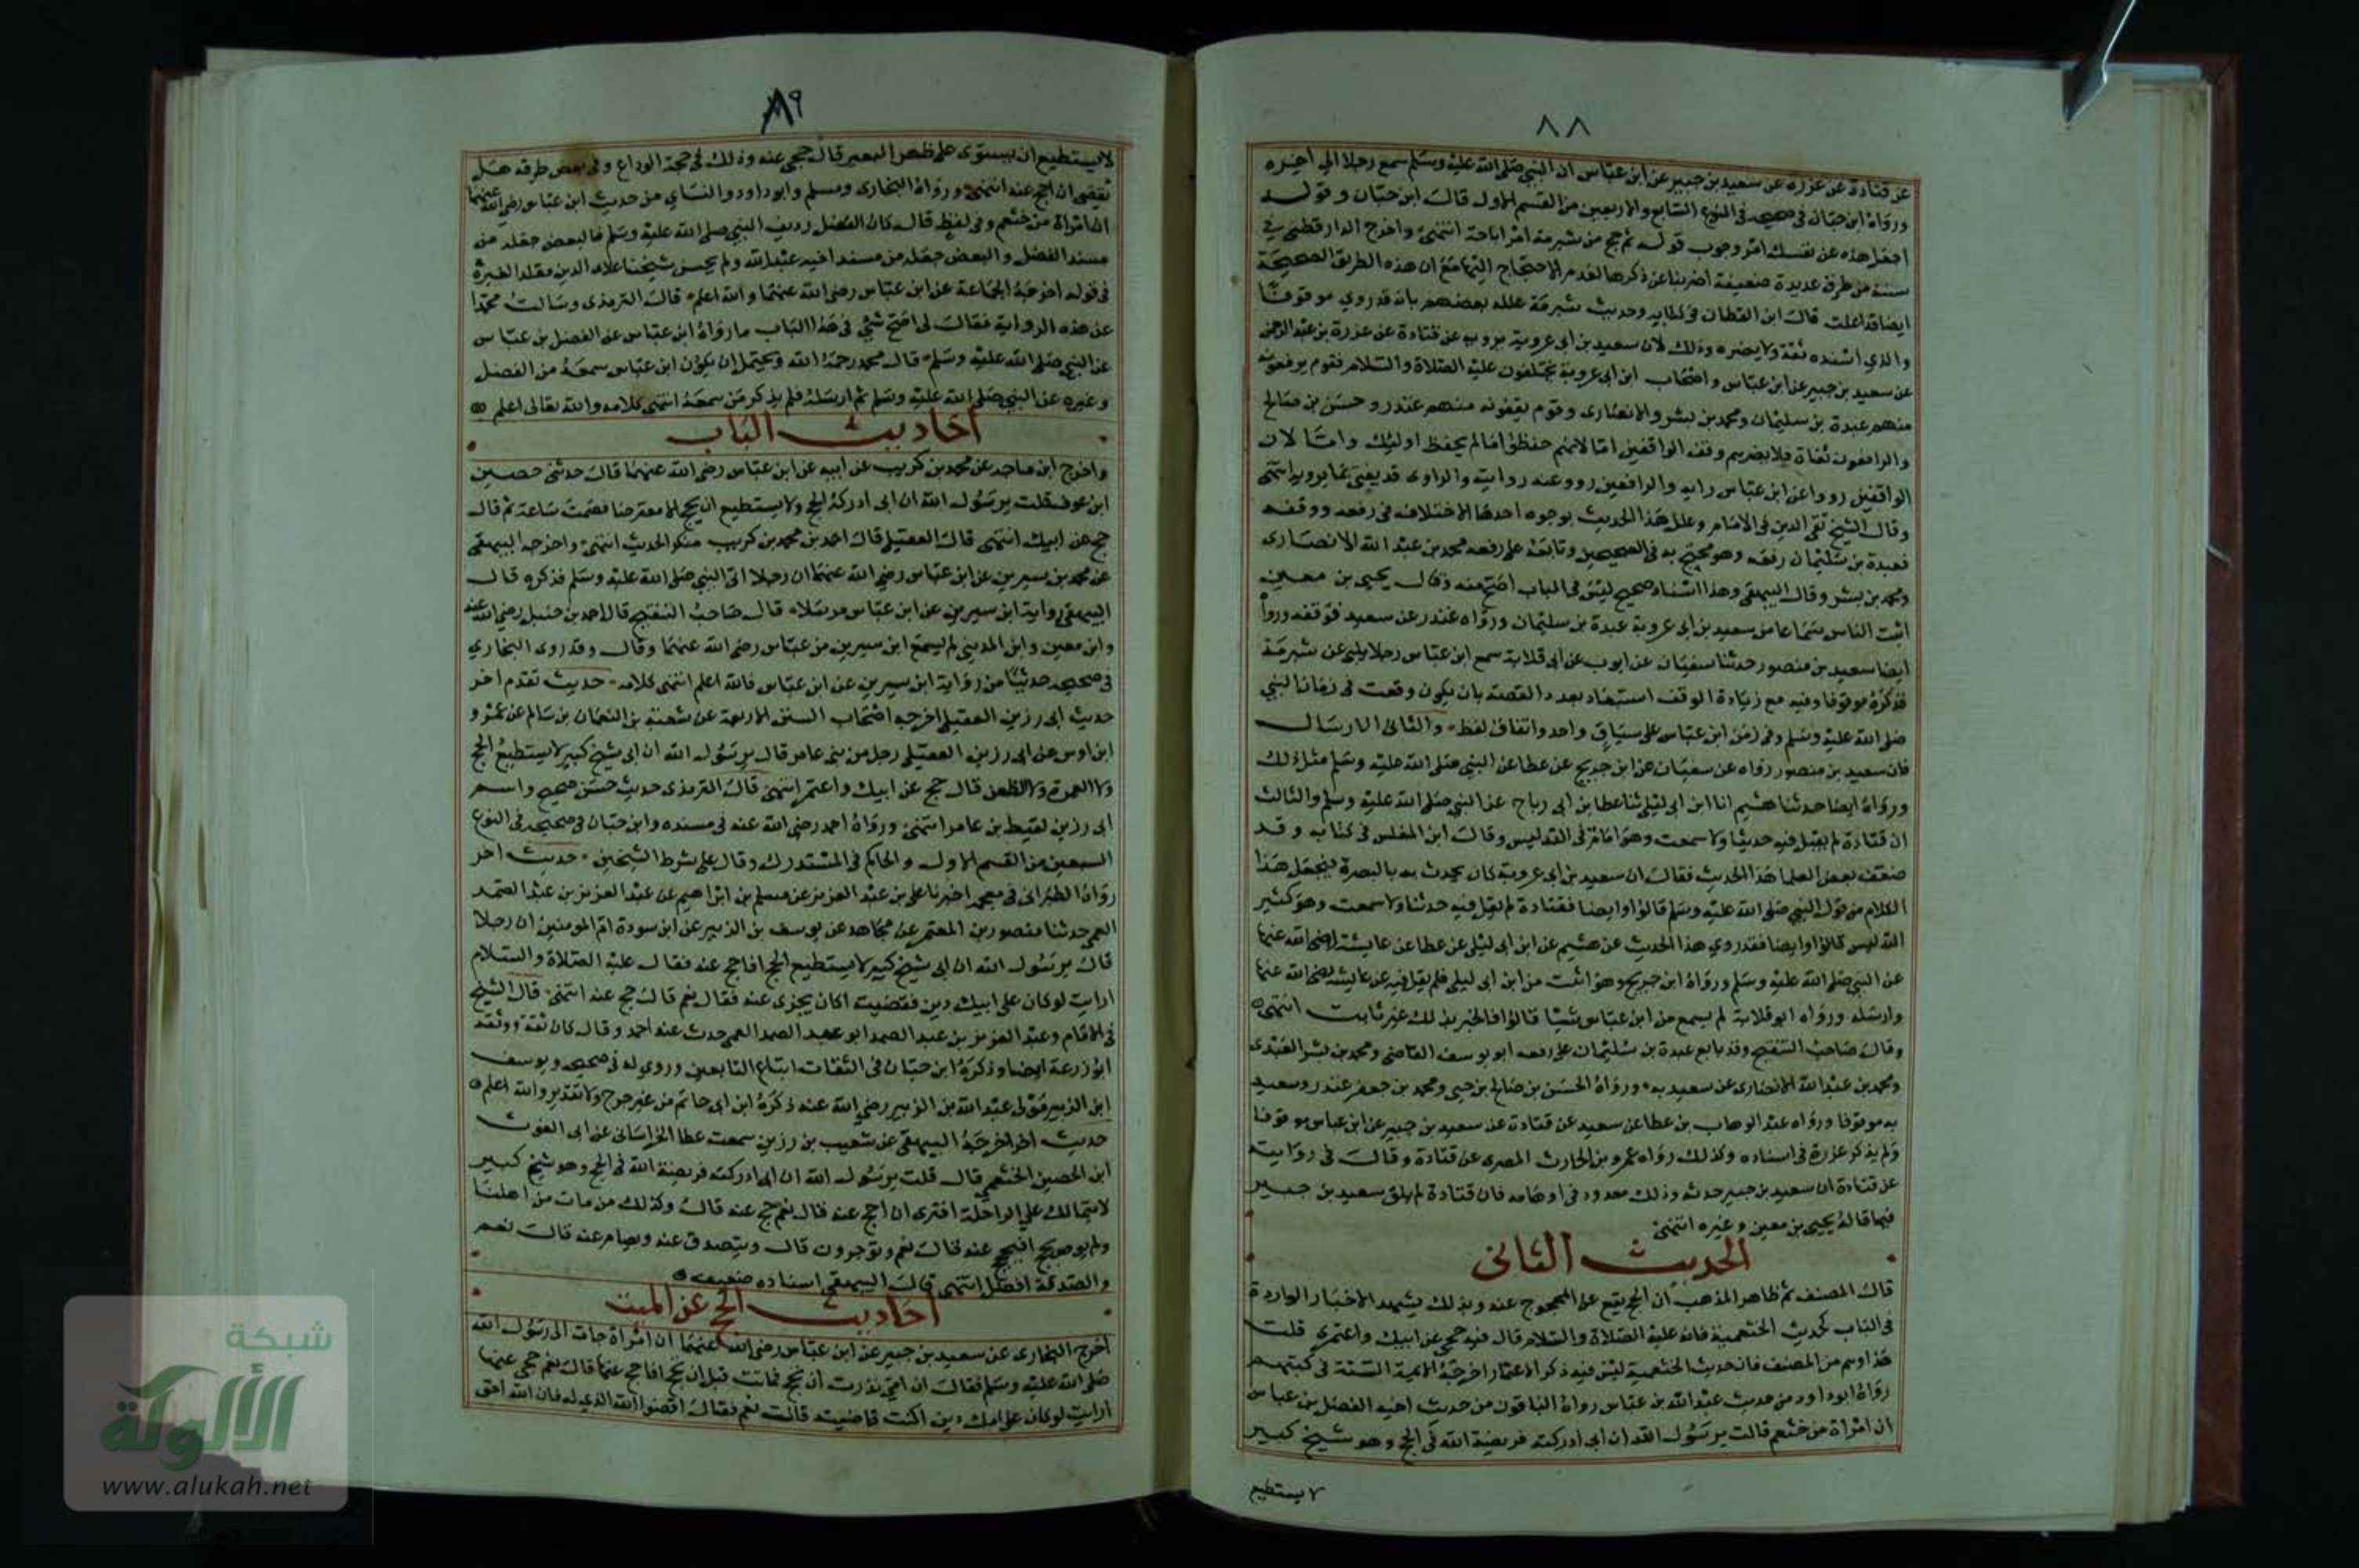 ٨٨
عن قتادة عن عزرة عن سعيد بن جبير عن ابن عباس ان النبي صلى الله عليه وسلم سمع رجلا الى اخره
ورواه ابن حبان في صحيحه في النوع السابع والاربعين من القسم الاول قال ابن حبان وقوله
اجعل هذه عن نفسك امر وجوب قوله ثم حج من شبرمة امر اباحة انتهى واخرج الدارقطني في
سننه من طرق عديدة ضعيفة اضربنا عن ذكرها لعدم الاحتجاج اليها مع ان هذه الطريق الصحيحة
ايضا قد اعلت قال ابن القطان في كتابه وحديث شبرمة علله بعضهم بانه قد روي موقوفا
والذي اسنده ثقة ولا يضره وذلك لان سعيد بن ابي عروبة يرويه عن قتادة عن عزرة بن عبد الرحمن
عن سعيد بن جبير عن ابن عباس واصحاب ابن ابي عروبة يختلفون عليه الصلاة والسلام فقوم يرفعونه
منهم عبدة بن سليمان ومحمد بن بشر والانصارى وقوم يقفونه منهم غندر وحسن بن صالح
والرافعون ثقاة فلا يضرهم وقف الواقفين اما لانهم حفظوا ما لم يحفظ اولئك واما لان
الواقفين رووا عن ابن عباس رايه والرافعين رووا عنه روايته والراوى قد يفتى بما يرويه انتهى
وقال الشيخ تقى الدين في الامام وعلل هذا الحديث بوجوه احدها الاختلاف في رفعه ووقفه
فعبدة بن سليمان رفعه وهو محتج به في الصحيحين وتابعه على رفعه محمد بن عبد الله الانصارى
ومحمد بن بشر وقال البيهقى وهذا اسناد صحيح ليس في الباب اصح منه وقال يحيى بن معين
اثبت الناس سماعا من سعيد بن ابى عروبة عبدة بن سليمان ورواه غندر عن سعيد فوقفه وروا
ايضا سعيد بن منصور حدثنا سفيان عن ايوب عن ابى قلابة سمع ابن عباس رجلا يلبى عن شبرمة
فذكره موقوفا وفيه مع زيادة الوقف استبعاد بعدد القصة بان يكون وقعت في زمان النبي
صلى الله عليه وسلم وفي زمن ابن عباس على سياق واحد واتفاق لفظ والثانى الارسال
فان سعيد بن منصور رواه عن سفيان عن ابن جريج عن عطا عن النبي صلى الله عليه وسلم مثل ذلك
ورواه ايضا حدثنا هشيم انا ابن ابى ليلى ثنا عطا بن ابى رباح عن النبي صلى الله عليه وسلم والثالث
ان قتادة لم يقل فيه حدثنا ولا سمعت وهو امام في التدليس وقال ابن المغلس في كتابه وقد
ضعف بعض العلما هذا الحديث فقال ان سعيد بن ابى عروبة كان يحدث به بالبصرة فيجعل هذا
الكلام من قول النبي صلى الله عليه وسلم قالوا وايضا فقتادة لم يقل فيه حدثنا ولا سمعت وهو كثير
التدليس قالوا وايضا فقد روي هذا الحديث عن هشيم عن ابن ابى ليلى عن عطا عن عايشة رضى الله عنها
عن النبي صلى الله عليه وسلم ورواه ابن جريج وهو اثبت من ابن ابى ليلى فلم يقل فيه عن عايشة رضى الله عنها
وارسله ورواه ابو قلابة لم يسمع من ابن عباس شيئا قالوا فالخبر بذلك غير ثابت انتهى
وقال صاحب التنقيح وقد تابع عبدة بن سليمان على رفعه ابو يوسف القاضى ومحمد بن بشر العبدى
ومحمد بن عبد الله الانصارى عن سعيد به ورواه الحسن بن صالح بن حيى ومحمد بن جعفر غندر وسعيد
به موقوفا ورواه عبد الوهاب بن عطا عن سعيد عن قتادة عن سعيد بن جبير عن ابن عباس موقوفا
ولم يذكر عزرة في اسناده وكذلك رواه عمرو بن الحارث المصرى عن قتادة وقال في روايته
عن قتادة ان سعيد بن جبير حدثه وذلك معدود في اوهامه فان قتادة لم يلق سعيد بن جبير
فيما قاله يحيى بن معين وغيره انتهى
الحديث الثانى
قال المصنف ثم ظاهر المذهب ان الحج يقع عن المحجوج عنه وبذلك يشهد الاخبار الواردة
في الباب كحديث الخثعمية فانه عليه الصلاة والسلام قال فيه حجى عن ابيك واعتمرى قلت
هذا وهم من المصنف فان حديث الخثعمية ليس فيه ذكر الاعتمار اخرجه الايمة الستة في كتبهم
رواه ابو داود من حديث عبد الله بن عباس رواه الباقون من حديث اخيه الفضل بن عباس
ان امراة من خثعم قالت يرسول الله ان ابى ادركته فريضة الله في الحج وهو شيخ كبير
لا يستطيع
٨٩
لا يستطيع ان يستوى على ظهر البعير قال حجى عنه وذلك في حجة الوداع وفى بعض طرقه هل
يقضى ان احج عنه انتهى ورواه البخارى ومسلم وابو داود والنساي من حديث ابن عباس رضى الله عنهما
ان امراة من خثعم وفى لفظ قال كان الفضل رديف النبي صلى الله عليه وسلم فالبعض جعله من
مسند الفضل والبعض جعله من مسند اخيه عبد الله ولم يحسن شيخنا علاء الدين مقلدا لغيره
في قوله اخرجه الجماعة عن ابن عباس رضى الله عنهما والله اعلم قال الترمذى وسالت محمدا
عن هذه الرواية فقال لى اصح شئ في هذا الباب ما رواه ابن عباس عن الفضل بن عباس
عن النبي صلى الله عليه وسلم قال محمد رحمه الله ويحتمل ان يكون ابن عباس سمعه من الفضل
وغيره عن النبي صلى الله عليه وسلم ثم ارسله فلم يذكر من سمعه انتهى كلامه والله تعالى اعلم
احاديث الباب
واخرج ابن ماجه عن محمد بن كريب عن ابيه عن ابن عباس رضى الله عنهما قال حدثنى حصين
ابن عوف قلت يرسول الله ان ابى ادركه الحج ولا يستطيع ان يحج الا معترضا فصمت ساعة ثم قال
حج عن ابيك انتهى قال العقيلى قال احمد بن محمد بن كريب منكر الحديث انتهى واخرجه البيهقى
عن محمد بن سيرين عن ابن عباس رضى الله عنهما ان رجلا اتى النبي صلى الله عليه وسلم فذكره قال
البيهقى رواية ابن سيرين عن ابن عباس مرسلا قال صاحب التنقيح قال احمد بن حنبل رضى الله عنه
وابن معين وابن المدينى لم يسمع ابن سيرين من عباس رضى الله عنهما وقال وقد روى البخاري
في صحيحه حديثا من رواية ابن سيرين عن ابن عباس فالله اعلم انتهى كلامه حديث تقدم اخر
حديث ابى رزين العقيلى اخرجه اصحاب السنن الاربعة عن شعبة بن النعمان بن سالم عن عمرو
ابن اوس عن ابى رزين العقيلى رجل من بنى عامر قال يرسول الله ان ابى شيخ كبير لا يستطيع الحج
ولا العمرة ولا الظعن قال حج عن ابيك واعتمر انتهى قال الترمذى حديث حسن صحيح واسم
ابى رزين لقيط بن عامر انتهى ورواه احمد رضى الله عنه في مسنده وابن حبان في صحيحه في النوع
السبعين من القسم الاول والحاكم في المستدرك وقال على شرط الشيخين حديث اخر
رواه الطبرانى في معجمه اخبرنا على بن عبد العزيز عن مسلم بن ابراهيم عن عبد العزيز بن عبد الصمد
العمى حدثنا منصور بن المعتمر عن مجاهد عن يوسف بن الزبير عن ابن سودة ام المومنين ان رجلا
قال يرسول الله ان ابى شيخ كبير لا يستطيع الحج افاحج عنه فقال عليه الصلاة والسلام
ارايت لو كان على ابيك دين فقضيته اكان يجزى عنه فقال نعم قال حج عنه انتهى قال الشيخ
في الامام وعبد العزيز بن عبد الصمد ابو عبد الصمد العمى حدث عنه احمد وقال كان ثقة ووثقه
ابو زرعة ايضا وذكره ابن حبان في الثقات اتباع التابعين وروى له في صحيحه ويوسف
ابن الزبير مولى عبد الله بن الزبير رضى الله عنه ذكره ابن ابى حاتم من غير جرح ولا تعديل والله اعلم
حديث اخر اخرجه البيهقى عن شعيب بن رزين سمعت عطا الخراسانى عن ابى الغوث
ابن الحصين الخثعمى قال قلت يرسول الله ان ابى ادركته فريضة الله في الحج وهو شيخ كبير
لا يتمالك على الراحلة افترى ان احج عنه قال نعم حج عنه قال وكذلك من مات من اهلنا
ولم يوص بحج افيحج عنه قال نعم وتوجرون قال ويتصدق عنه ويصام عنه قال نعم
والصدقة افضل انتهى قال البيهقى اسناده ضعيف
احاديث الحج عن الميت
اخرج البخارى عن سعيد بن جبير عن ابن عباس رضى الله عنهما ان امراة جات الى رسول الله
صلى الله عليه وسلم فقالت ان امى نذرت ان تحج فماتت قبل ان تحج افاحج عنها قال نعم حجى عنها
ارايت لو كان على امك دين اكنت قاضيته قالت نعم فقال اقضوا الله الذى له فان الله احق
شبكة
الألوكة
www.alukah.net